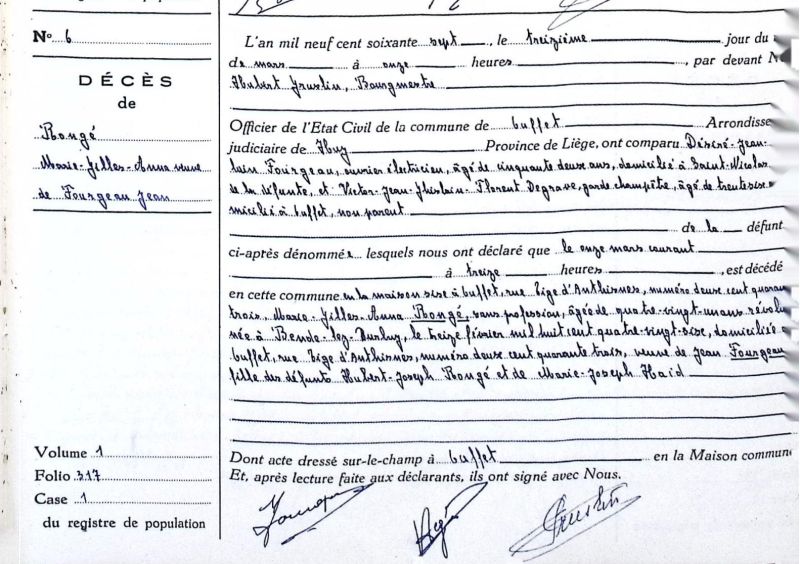 Nº 6
DÉCÈS
de
Rongé
Marie-Gilles-Anna veuve
de Fourgeau Jean
Volume 1
Folio 317
Case 1
du registre de population
L'an mil neuf cent soixante sept, le treizième jour du
de mars à onze heures, par devant N
Hubert Gruslin, Bourgmestre
Officier de l'Etat Civil de la commune de Ouffet Arrondisse
judiciaire de Huy Province de Liège, ont comparu Désiré-Jean-
lain Fourgeau, ouvrier électricien, âgé de cinquante deux ans, domicilié à Saint-Nicolas
de la défunte, et Victor-Jean-Ghislain-Florent Degrave, garde champêtre, âgé de trente six
micilié à Ouffet, non parent
de la défunt
ci-après dénommée lesquels nous ont déclaré que le onze mars courant
à treize heures, est décédé
en cette commune en la maison sise à Ouffet, rue Tige d'Anthisnes, numéro deux cent quaran
trois, Marie-Gilles-Anna Rongé, sans profession, âgée de quatre-vingt-un ans révolu
née à Bende-lez-Durbuy, le treize février mil huit cent quatre-vingt-six, domiciliée à
Ouffet, rue Tige d'Anthisnes, numéro deux cent quarante trois, veuve de Jean Fourgeau
fille des défunts Hubert-Joseph Rongé et de Marie-Joseph Haid
Dont acte dressé sur-le-champ à Ouffet en la Maison commun
Et, après lecture faite aux déclarants, ils ont signé avec Nous.